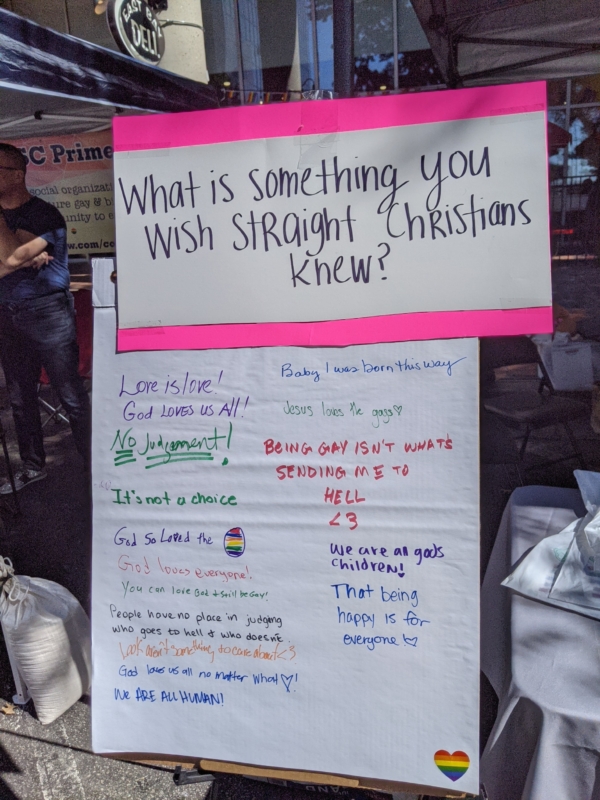 EAST
DELI
SC Prime
social organizati
ure gay & b
unity to e
w.com/cc
What is something you
wish straight Christians
knew?
Love is love!
God LOVES us All!
No Judgement!
It's not a choice
God So Loved the
God loves everyone!
You can love God & still be Gay!
People have no place in judging
who goes to hell & who doesn't.
Look aren't something to care about <3
God loves us all no matter what ♡!
We ARE ALL HUMAN!
Baby I was born this way
Jesus loves the gays ♡
BEING GAY ISN'T WHATS
SENDING ME TO
HELL
<3
We are all gods
children!
That being
happy is for
everyone ♡